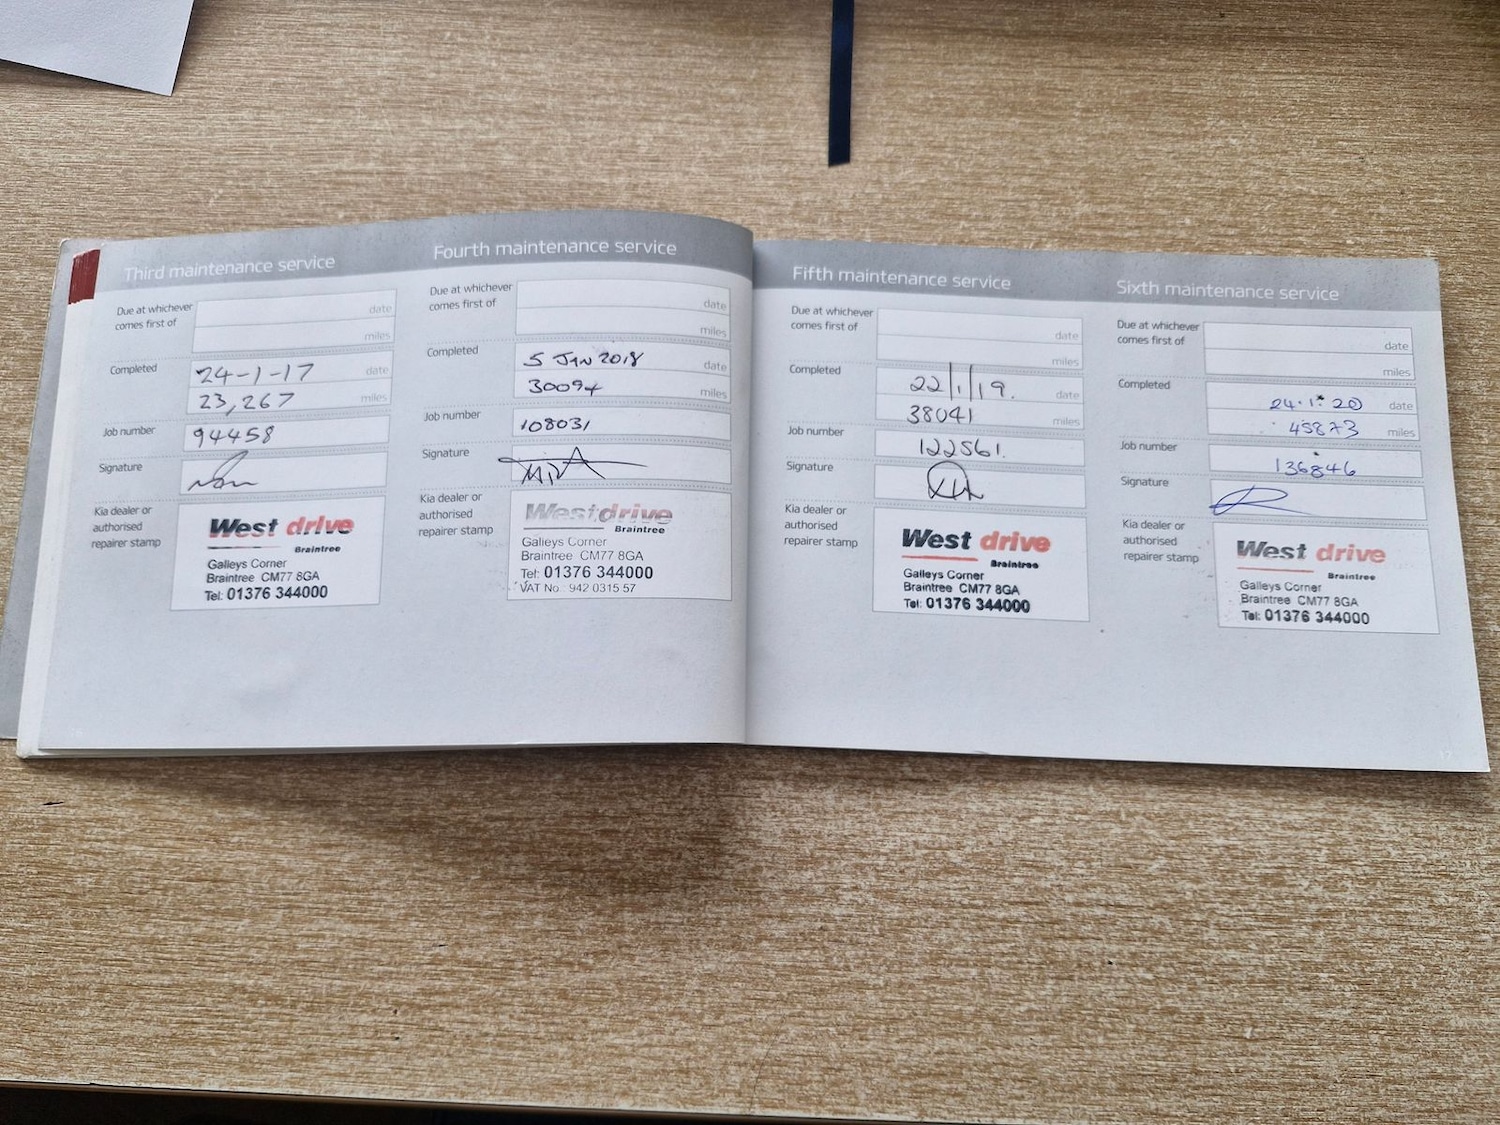 Third maintenance service
Due at whichever
comes first of
date
miles
Completed
24-1-17 date
23,267 miles
Job number
94458
Signature
Kia dealer or
authorised
repairer stamp
West drive
Braintree
Galleys Corner
Braintree CM77 8GA
Tel: 01376 344000
Fourth maintenance service
Due at whichever
comes first of
date
miles
Completed
5 JAN 2018 date
30094 miles
Job number
108031
Signature
Kia dealer or
authorised
repairer stamp
West drive
Braintree
Galleys Corner
Braintree CM77 8GA
Tel: 01376 344000
VAT No.: 942 0315 57
Fifth maintenance service
Due at whichever
comes first of
date
miles
Completed
22/1/19. date
38041 miles
Job number
122561.
Signature
Kia dealer or
authorised
repairer stamp
West drive
Braintree
Galleys Corner
Braintree CM77 8GA
Tel: 01376 344000
Sixth maintenance service
Due at whichever
comes first of
date
miles
Completed
24.1.20 date
45873 miles
Job number
136846
Signature
Kia dealer or
authorised
repairer stamp
West drive
Braintree
Galleys Corner
Braintree CM77 8GA
Tel: 01376 344000